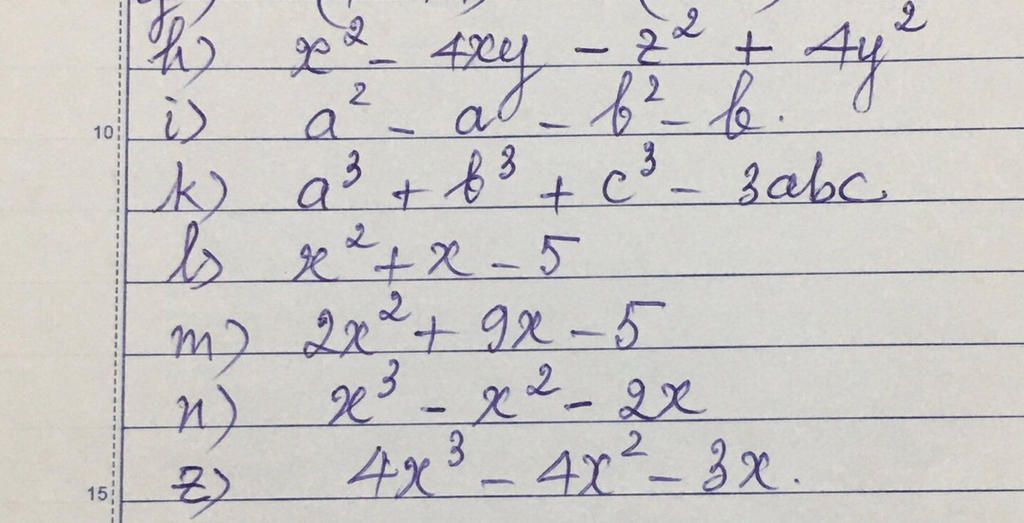 h) x² - 4xy - z² + 4y²
10 i) a² - a - b² - b.
k) a³ + b³ + c³ - 3abc
l) x² + x - 5
m) 2x² + 9x - 5
n) x³ - x² - 2x
15 z) 4x³ - 4x² - 3x.